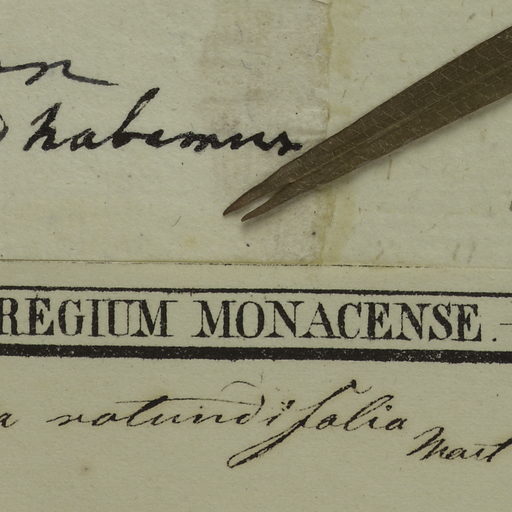 habemus
REGIUM MONACENSE.
a rotundifolia Mart